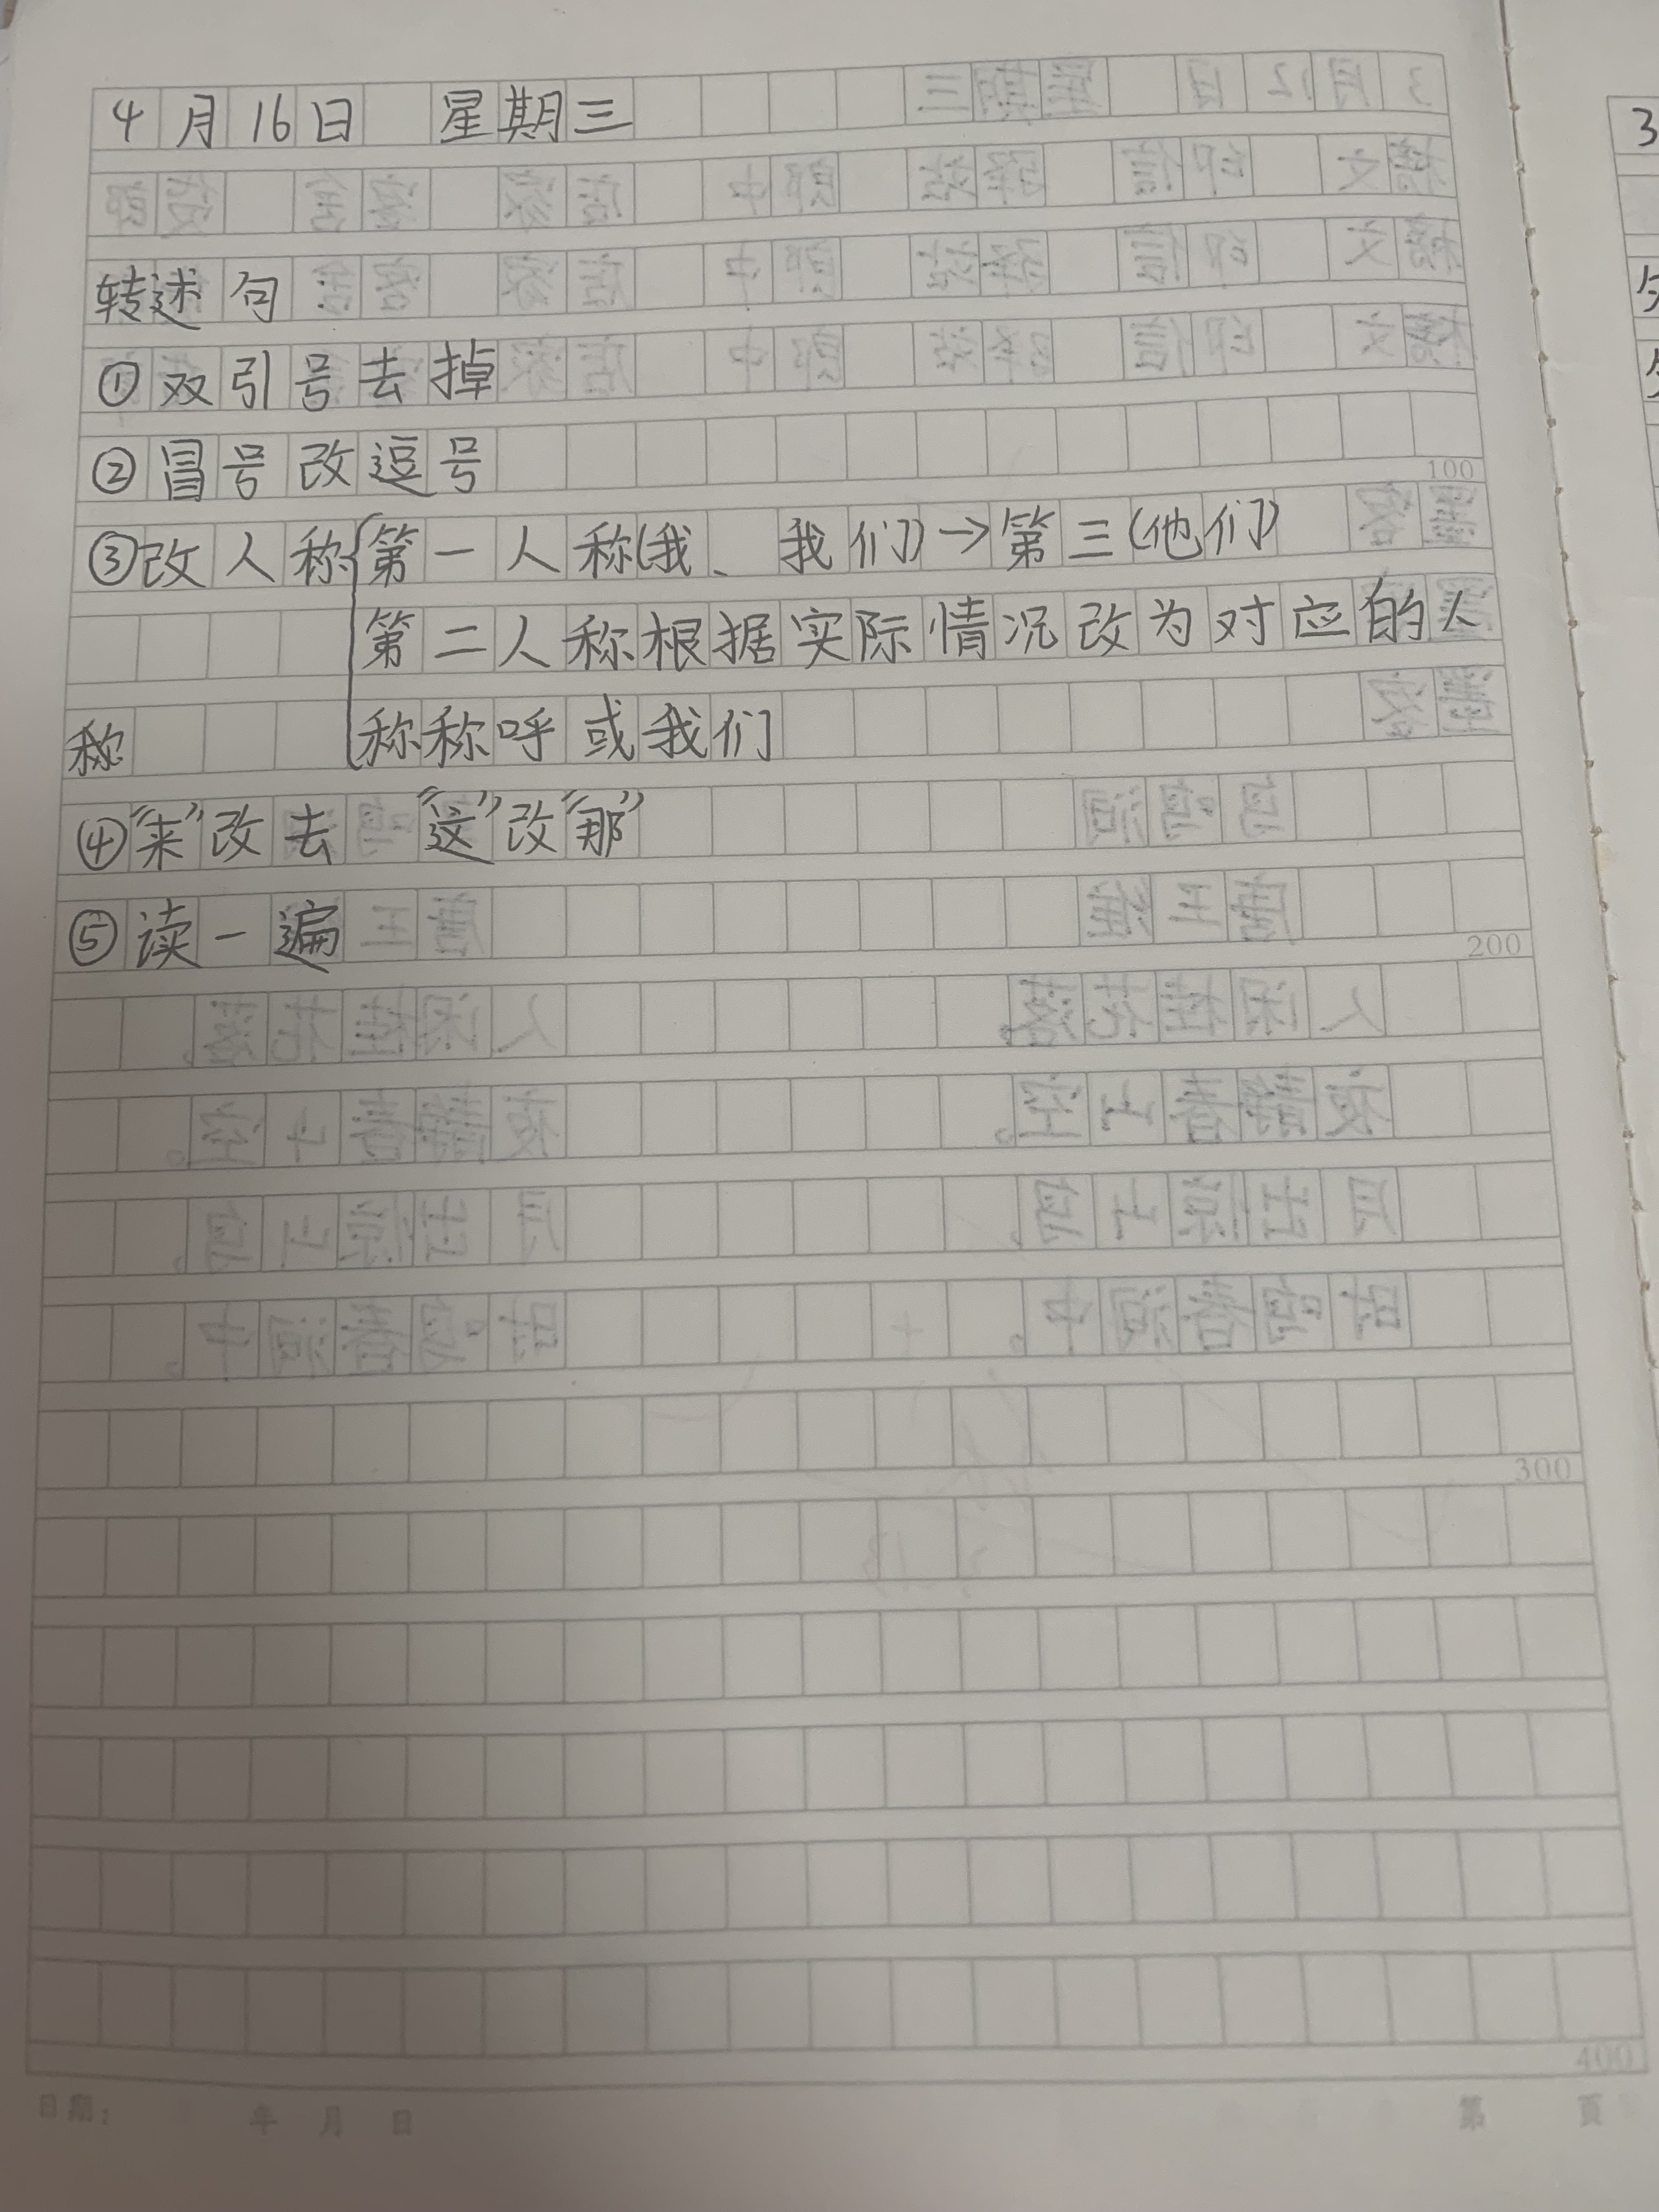 4月16日 星期三
转述句:
①双引号去掉
②冒号改逗号
③改人称{第一人称(我、我们)→第三(他们)
第二人称根据实际情况改为对应的人
称 称称呼或我们
④“来”改去 “这”改“那”
⑤读一遍
100
200
300
400
日期: 年 月 日 第 頁